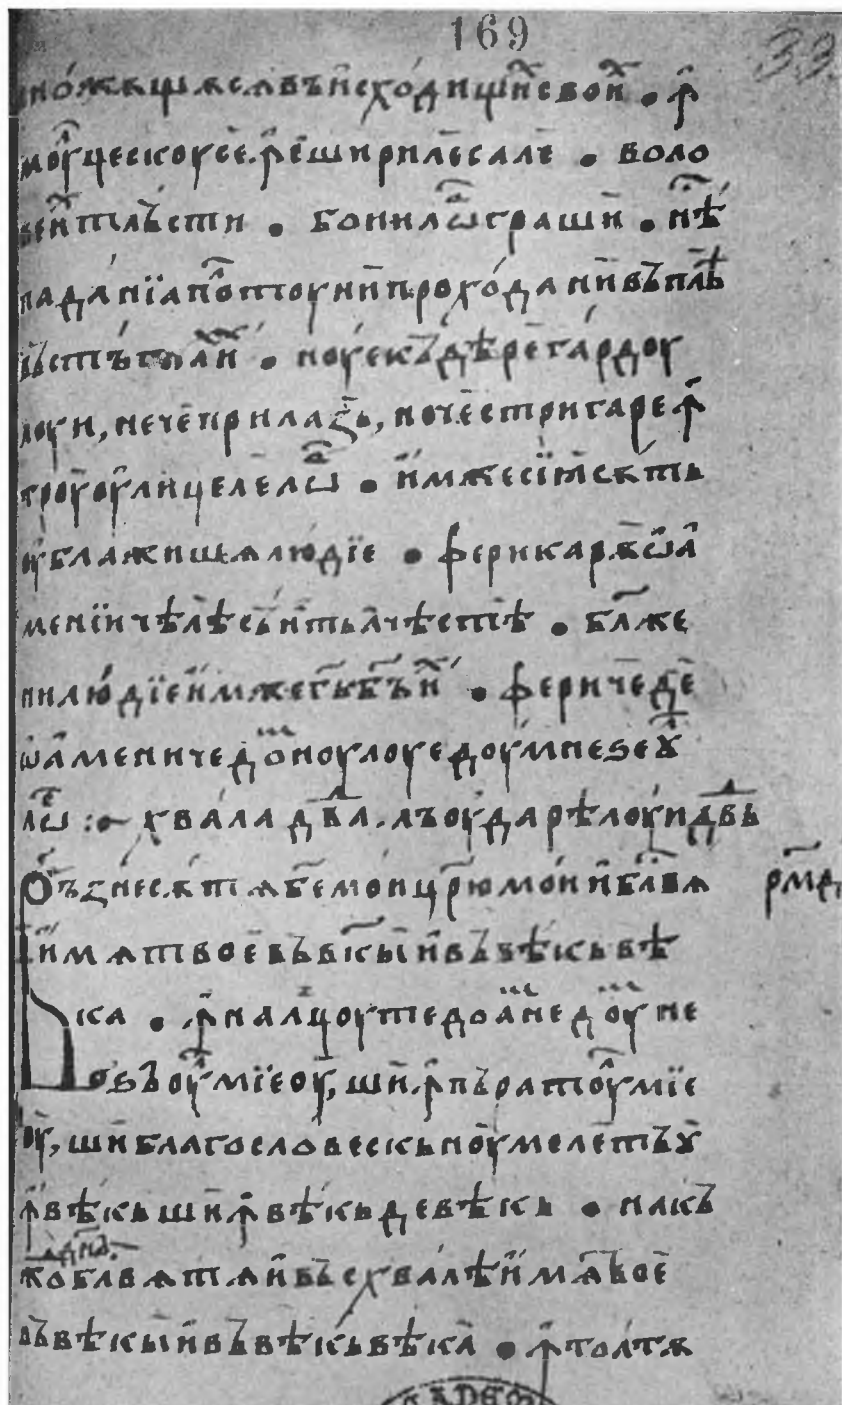 169
33
множѧщѧсѧ въ исходищи свои • ꙟ
моуцескоусе ꙟши риле сале • воло
веи тлъсти • бои илѡ граши • нѣ
паданїа плотоу ни проходани въ плѣ
въстъгнаи • ноу екъдѣре гардоу
лоуи, нече прилазь, ноче стригаре ꙟ
троу оулицеле лѡ • имже сїѫ сѫть
оублажишѧ людїе • фери карѣ ѡа
менїи чѣлѣ сънть ачѣстѣ • блаже
ни людїе имже гь бъ и • фериче де
ѡамени че домноу лоу е доумнеѕеу
лѡ :~ хвала двда • лъоуда рѣ лоуи двдь
Възнесѫ тѧ бже мои црю мои и блвѧ
рмд
имѧ твое въ вѣкы и въ вѣкь вѣ
ка • ꙟналцоуте доамне доумне
ѕъоу мїеоу, ши ꙟпъратоу мїе
оу, ши благословескь ноумеле тъу
ꙟ вѣкь ши ꙟ вѣкь де вѣкь • накъ
жо блвѧ тѧ и въсхвалѣ имѧ твое
въ вѣкы и въ вѣкь вѣка • ꙟ тоатѫ